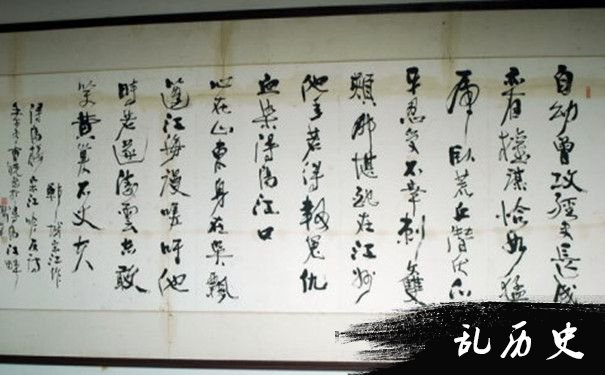 自幼曾攻經史長成
亦有權謀恰如猛
虎臥荒丘潛伏爪
牙忍受不幸刺雙
頰那堪配在江州
他年若得報冤仇
血染潯陽江口
心在山東身在吳飄
蓬江海漫嗟吁他
時若遂凌雲志敢
笑黃巢不丈夫
鄆城宋江作
潯陽樓宋江吟反詩
乱历史